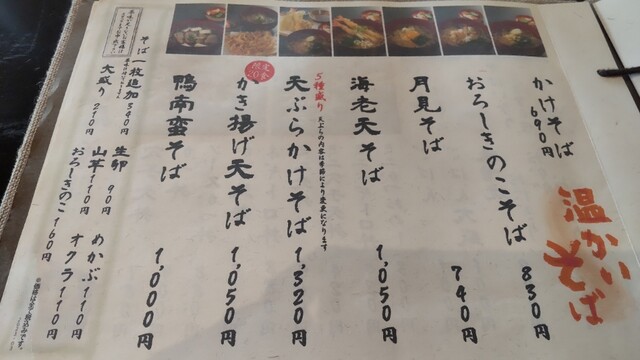 温かいそば
かけそば 690円
おろしきのこそば 830円
月見そば 740円
海老天そば 1,050円
5種盛り 天ぷらの内容は季節により変更になります
天ぷらかけそば 1,320円
限定20食
かき揚げ天そば 1,050円
鴨南蛮そば 1,000円
そば一枚追加 390円
大盛り 210円
生卵 90円
山芋 110円
おろしきのこ 160円
めかぶ 110円
オクラ 110円
※価格は全て税込みです。